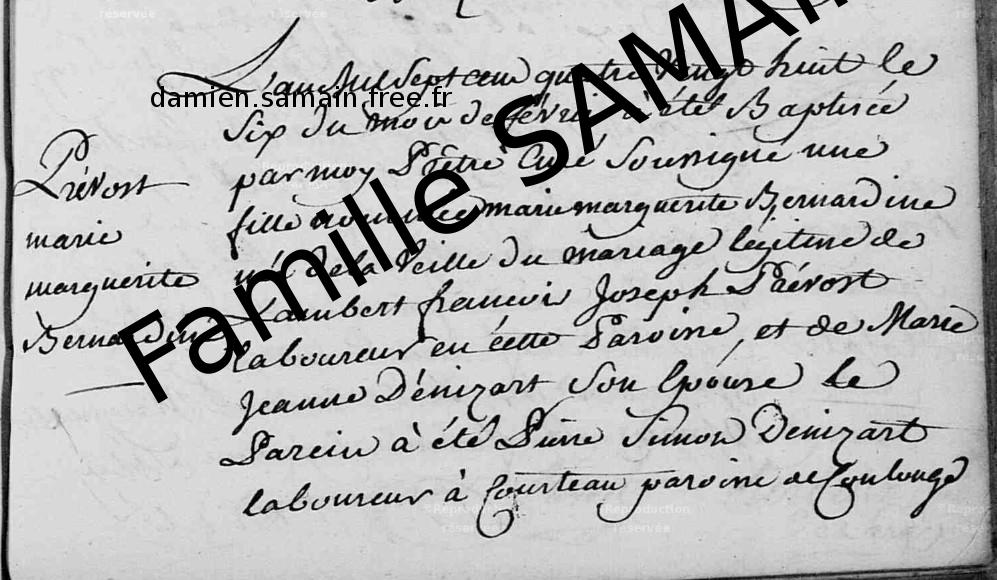 L'an Mil Sept cent quatre vingt huit le
damien.samain.free.fr
Six du mois de février a été Baptisée
par moy Prêtre Curé Soussigné une
fille nommée marie marguerite Bernardine
née de la Veille du mariage légitime de
Lambert francois Joseph Prévost
laboureur en cette Paroisse, et de Marie
Jeanne Dénizart Son Epouse Le
Parein à été Pierre Simon Denizart
laboureur à Courteau paroisse de Coulonge
Prévost
marie
marguerite
Bernardine
Famille SAMAI
Reproduction
réservée